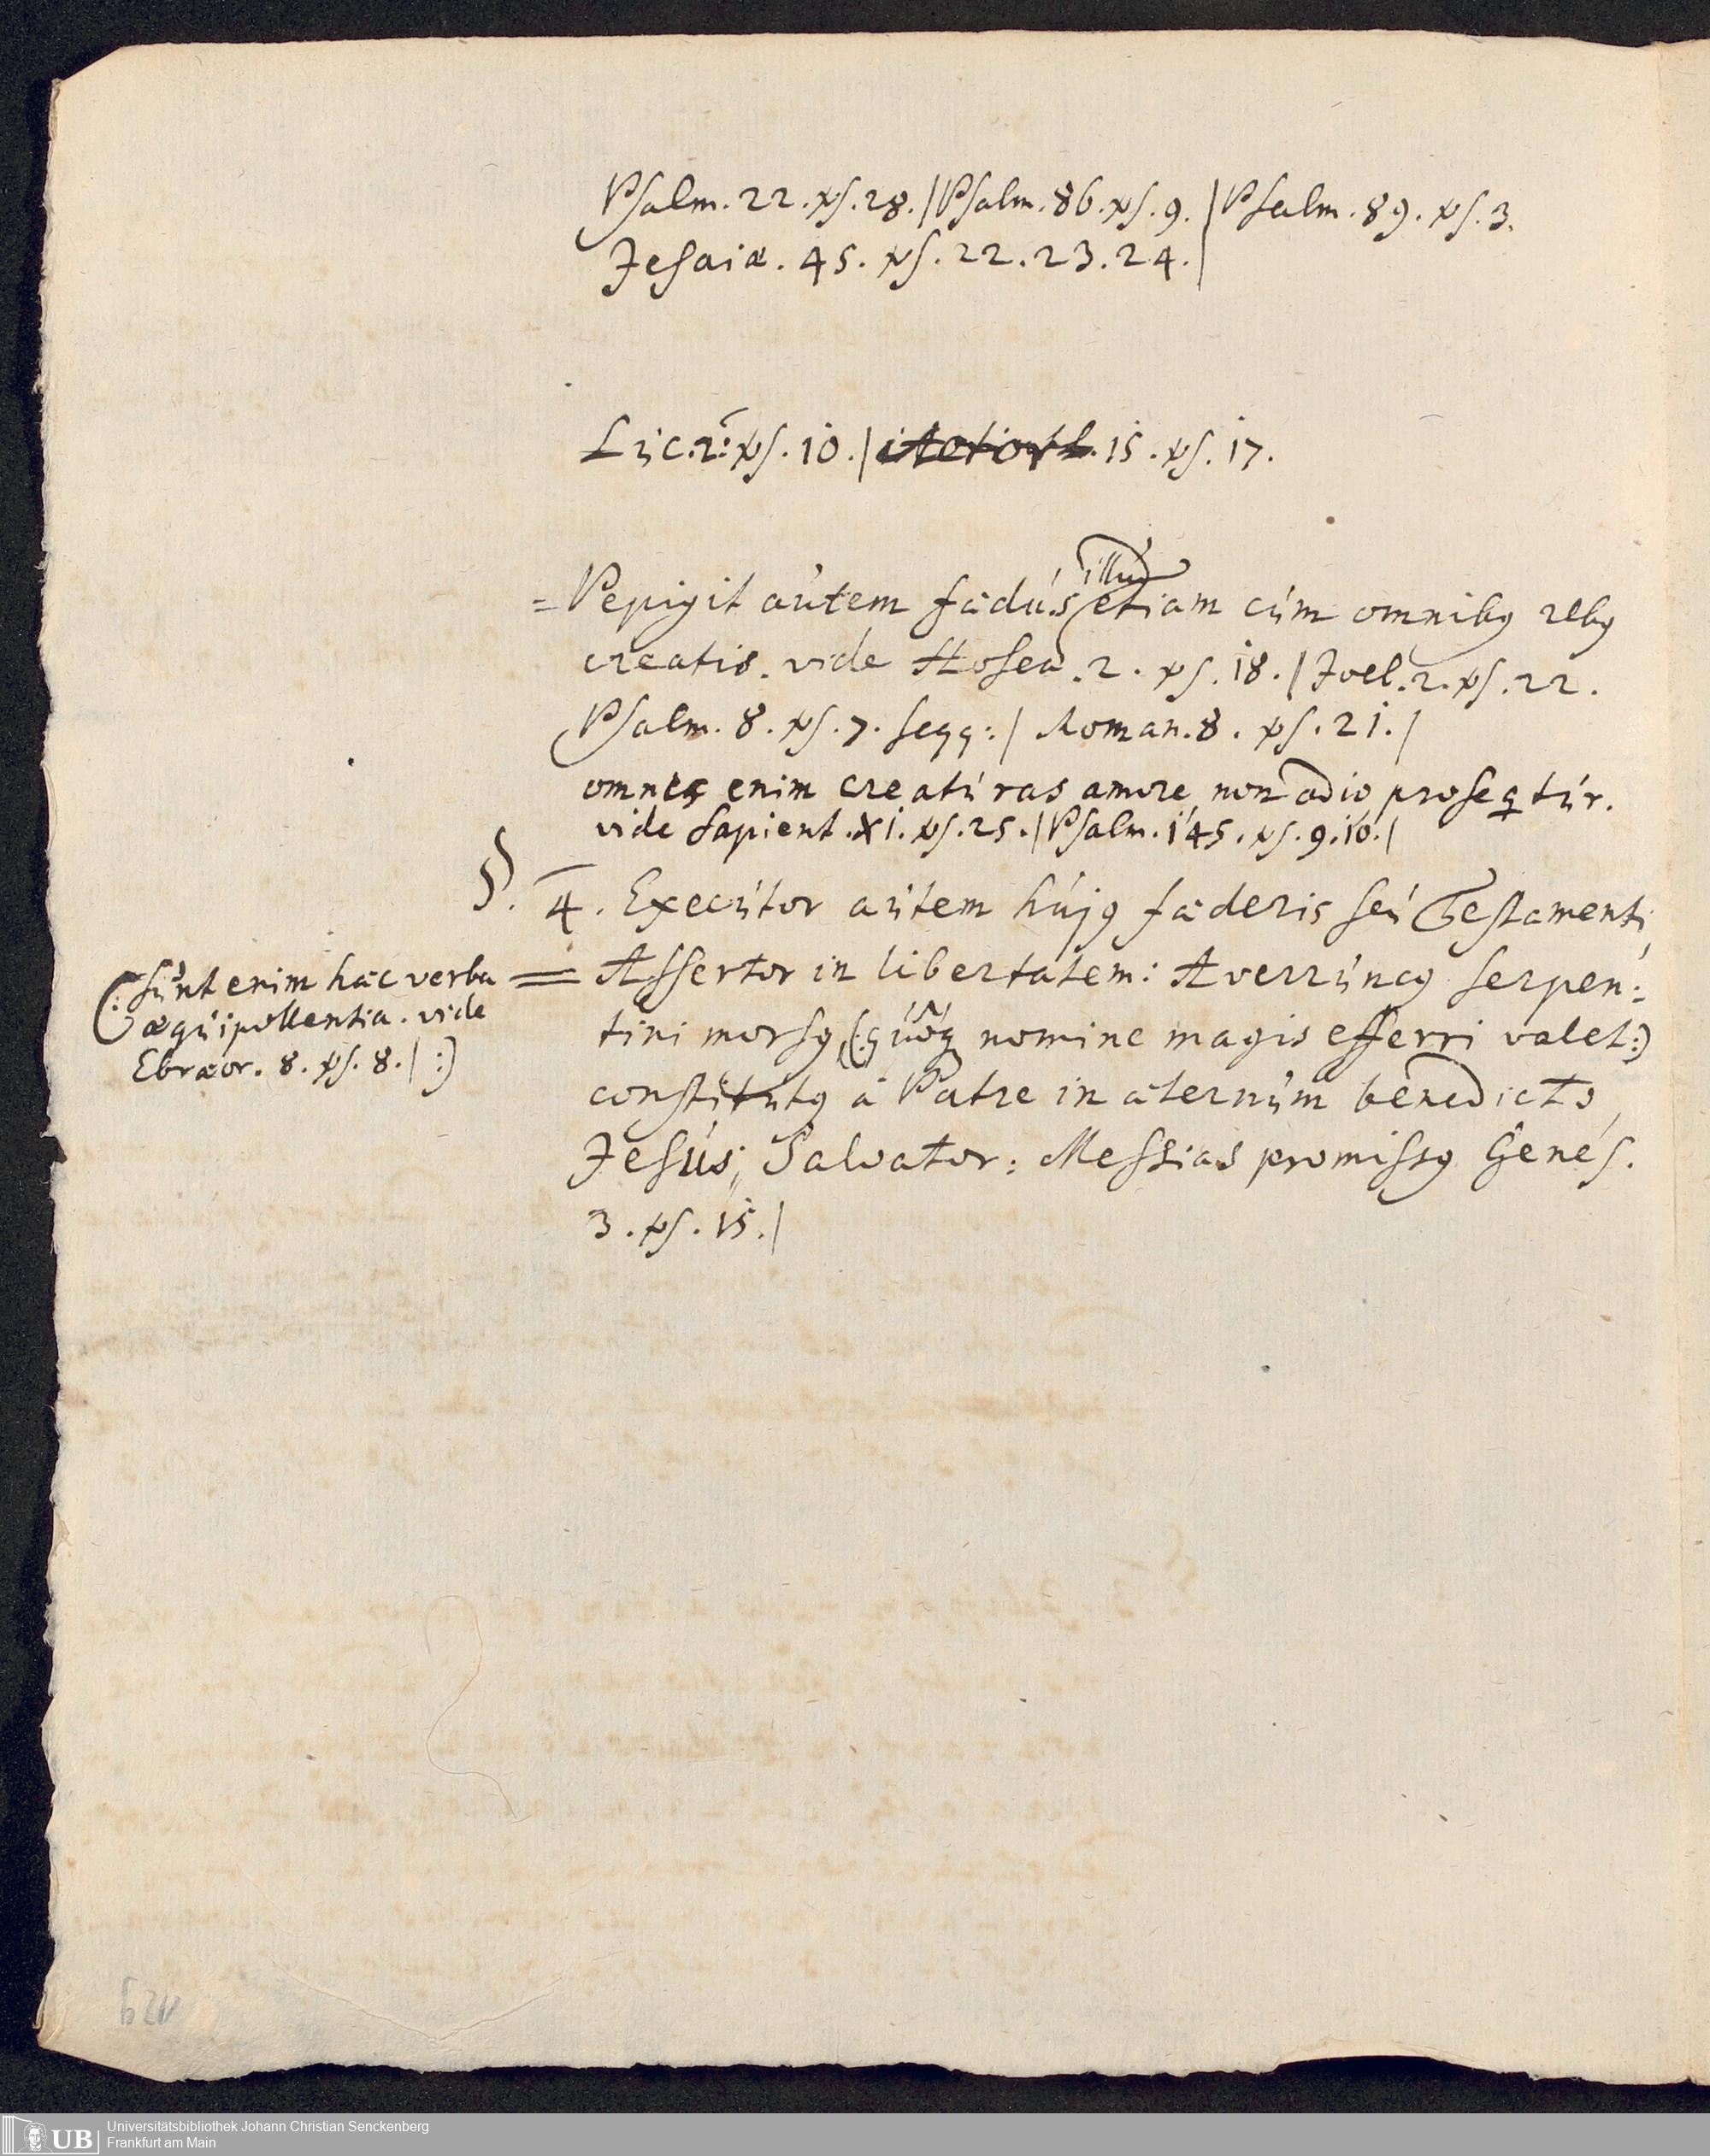 Psalm. 22. vs. 28. | Psalm. 86. vs. 9. | Psalm. 89. vs. 3.
Jesaiæ. 45. vs. 22. 23. 24. |
Luc. 2: vs. 10. | 15. vs. 17.
illud
= Pepigit autem fœdus etiam cum omnibꝰ rebꝰ
creatis. vide Hosea. 2. vs. 18. | Joel. 2. vs. 22.
Psalm. 8. vs. 7. seqq: | Roman. 8. vs. 21. |
omnes enim creaturas amore, non odio proseqtur.
vide Sapient. XI. vs. 25. | Psalm. 145. vs. 9. 10. |
§. 4. Executor autem hujꝰ fœderis seu Testamenti,
(: sunt enim hæc verba
æquipollentia. vide
Ebræor. 8. vs. 8. | :)
= Assertor in libertatem: Averruncꝰ serpen:
tini morsꝰ, (: quoq nomine magis efferri valet :)
constitutꝰ à Patre in æternum benedicto,
Jesus; Salvator: Messias promissꝰ Genes.
3. vs. 15. |
129
UB Universitätsbibliothek Johann Christian Senckenberg
Frankfurt am Main